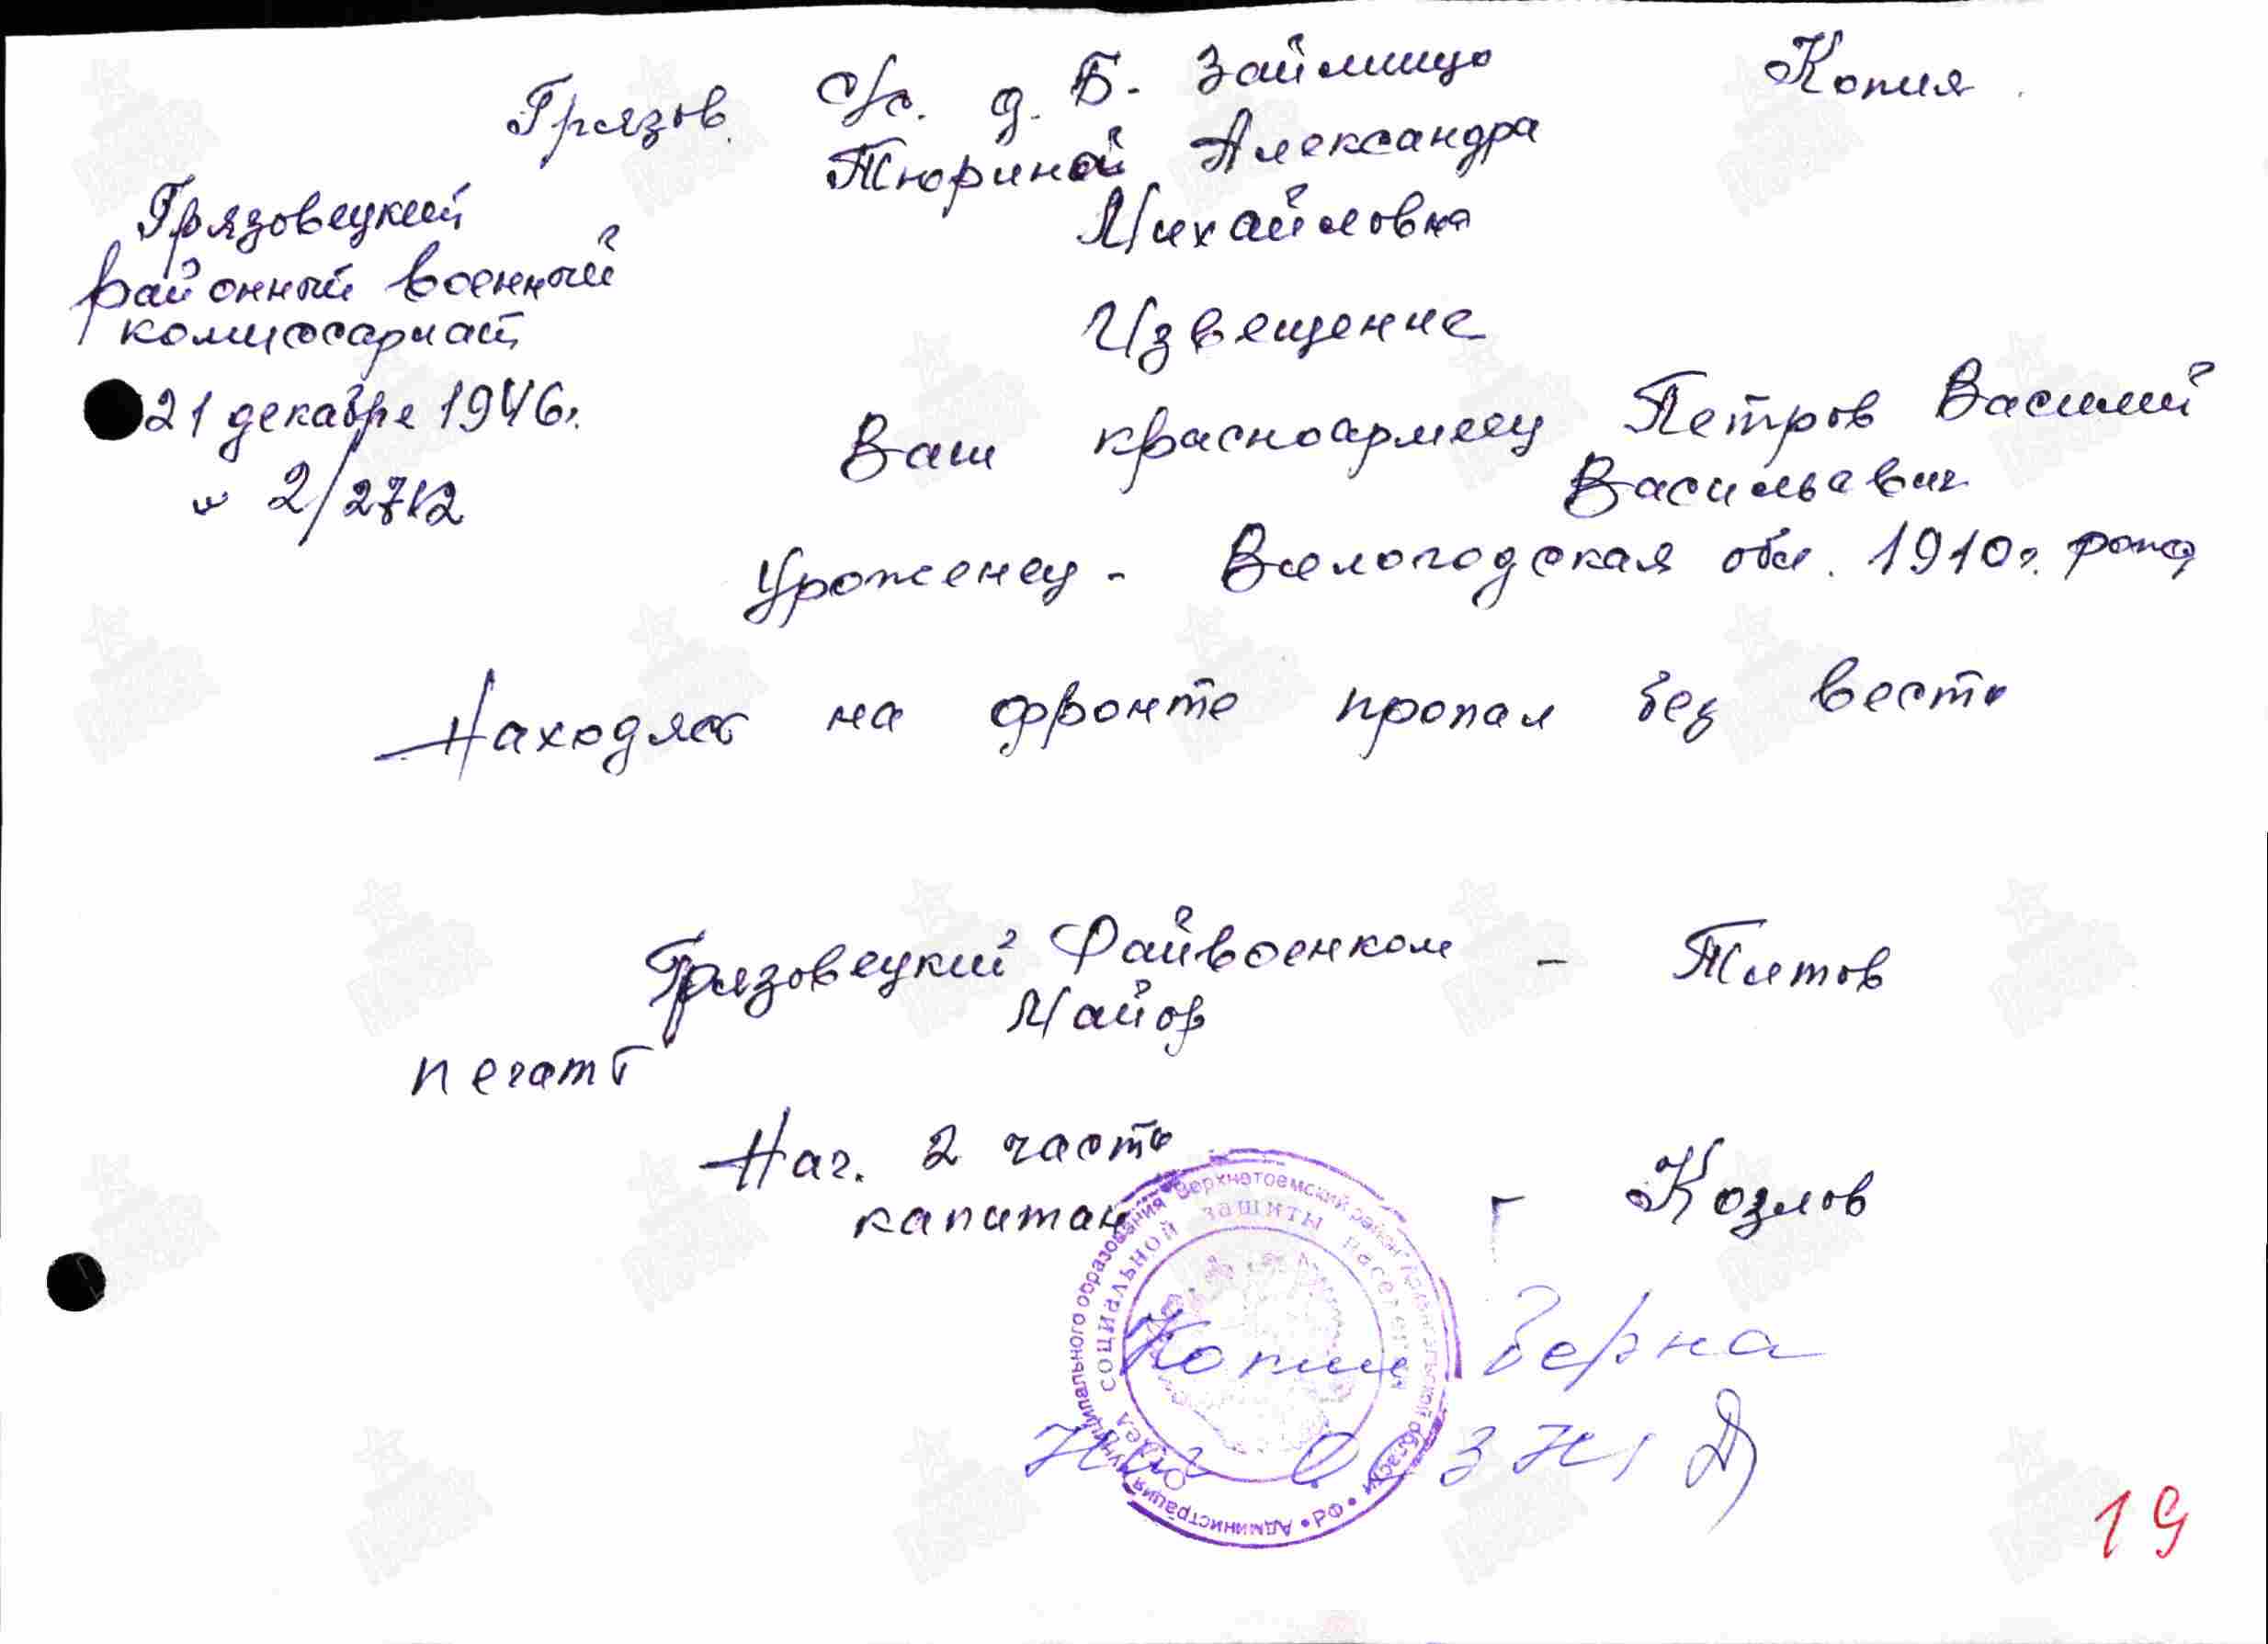 Копия
Грязов. с/с. д. Б. Займищо
Тюриной Александра
Михайловна
Грязовецкий
районный военный
комиссариат
21 декабре 1946г.
2/2712
Извещение
Ваш красноармеец Петров Василий
Васильевич
Уроженец - Вологодская обл. 1910г. рожд
Находясь на фронте пропал без вести
Грязовецкий Райвоенком - Титов
Майор
печать
Нач. 2 части
капитан - Козлов
Администрация муниципального образования "Верхнетоемский район" Архангельской области • РФ •
Отдел социальной защиты населения
Копия верна
19